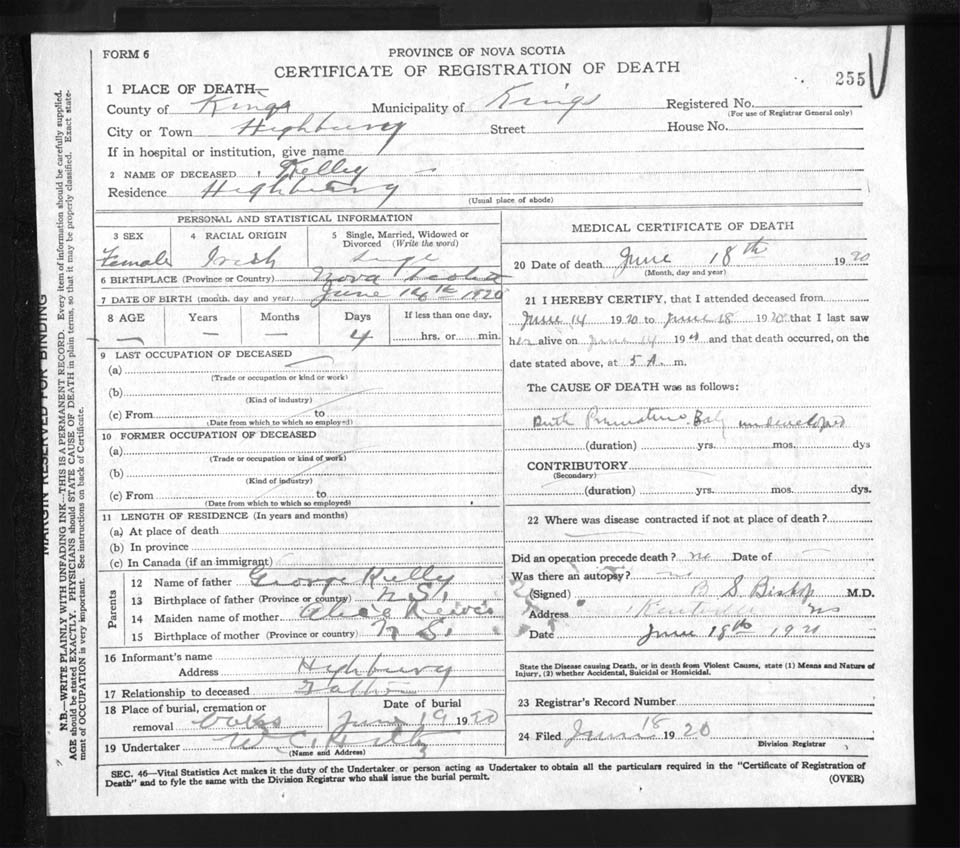 FORM 6
PROVINCE OF NOVA SCOTIA
CERTIFICATE OF REGISTRATION OF DEATH
255
1 PLACE OF DEATH—
County of Kings Municipality of Kings Registered No.
(For use of Registrar General only)
City or Town Highbury Street House No.
If in hospital or institution, give name
2 NAME OF DECEASED Kelley
Residence Highbury
(Usual place of abode)
PERSONAL AND STATISTICAL INFORMATION
3 SEX 4 RACIAL ORIGIN 5 Single, Married, Widowed or Divorced (Write the word)
Female Irish Single
6 BIRTHPLACE (Province or Country) Nova Scotia
7 DATE OF BIRTH (month, day and year) June 14th 1920
8 AGE Years Months Days If less than one day,
— — 4 hrs. or min.
9 LAST OCCUPATION OF DECEASED
(a)
(Trade or occupation or kind or work)
(b)
(Kind of industry)
(c) From to
(Date from which to which so employed)
10 FORMER OCCUPATION OF DECEASED
(a)
(Trade or occupation or kind of work)
(b)
(Kind of industry)
(c) From to
(Date from which to which so employed)
11 LENGTH OF RESIDENCE (In years and months)
(a) At place of death
(b) In province
(c) In Canada (if an immigrant)
Parents
12 Name of father George Kelly
13 Birthplace of father (Province or country) N.S.
14 Maiden name of mother
15 Birthplace of mother (Province or country) N.S.
16 Informant's name
Address Highbury
17 Relationship to deceased Father
18 Place of burial, cremation or removal Date of burial
June 19 1920
19 Undertaker W. C.
(Name and Address)
MEDICAL CERTIFICATE OF DEATH
20 Date of death June 18th 1920
(Month, day and year)
21 I HEREBY CERTIFY, that I attended deceased from
June 14 1920 to June 18 1920 that I last saw
her alive on June 14 19 and that death occurred, on the
date stated above, at 5 A. m.
The CAUSE OF DEATH was as follows:
Birth Premature. Baby undeveloped
(duration) yrs. mos. dys
CONTRIBUTORY
(Secondary)
(duration) yrs. mos. dys.
22 Where was disease contracted if not at place of death?
Did an operation precede death? no Date of
Was there an autopsy? no
(Signed) B S Bishop M.D.
Address Kentville NS
Date June 18th 192
State the Disease causing Death, or in death from Violent Causes, state (1) Means and Nature of
Injury, (2) whether Accidental, Suicidal or Homicidal.
23 Registrar's Record Number
24 Filed June 18 1920
Division Registrar
SEC. 46—Vital Statistics Act makes it the duty of the Undertaker or person acting as Undertaker to obtain all the particulars required in the "Certificate of Registration of
Death" and to fyle the same with the Division Registrar who shall issue the burial permit. (OVER)
MARGIN RESERVED FOR BINDING
N.B.—WRITE PLAINLY WITH UNFADING INK—THIS IS A PERMANENT RECORD. Every item of information should be carefully supplied.
AGE should be stated EXACTLY. PHYSICIANS should STATE CAUSE OF DEATH in plain terms, so that it may be properly classified. Exact state-
ment of OCCUPATION is very important. See instructions on back of Certificate.